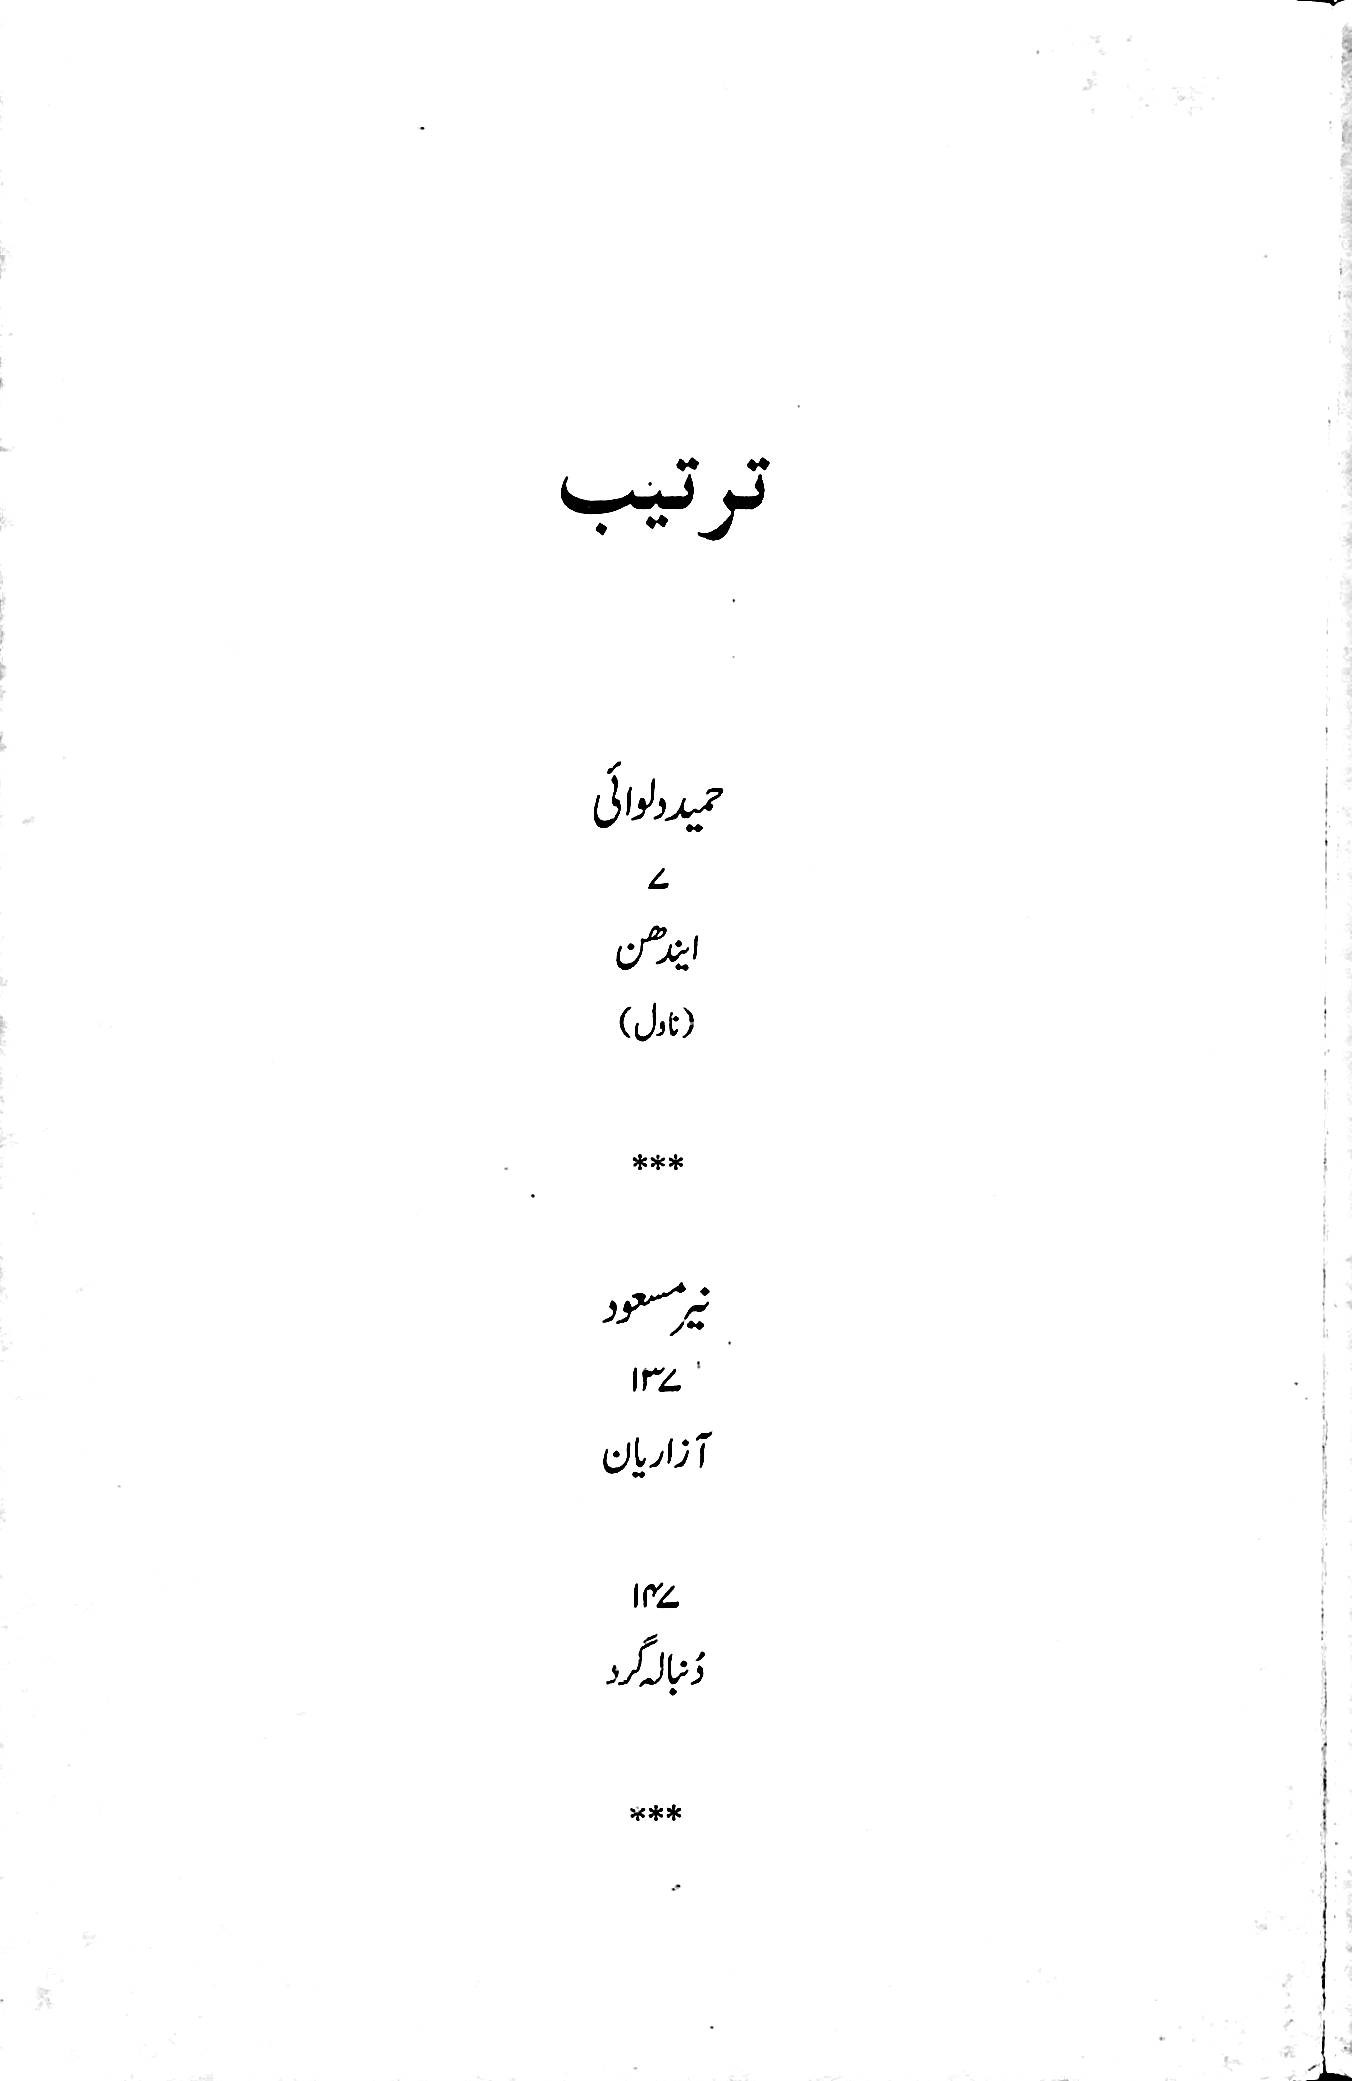 ترتیب
حمید دلوائی
۷
ایندھن
(ناول)
***
نیر مسعود
۱۳۷
آزاریان
۱۴۷
دُنبالہ گرد
***